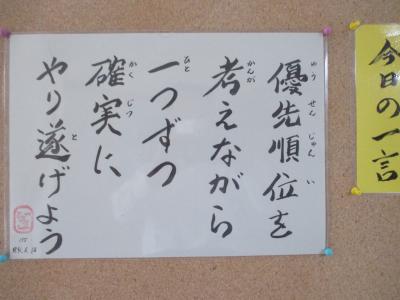 今日の一言
優先順位を
考えながら
一つずつ
確実に
やり遂げよう